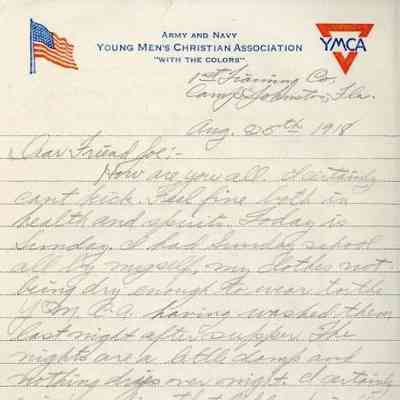 ARMY AND NAVY
YOUNG MEN'S CHRISTIAN ASSOCIATION
"WITH THE COLORS"
YMCA
1st Training Co.
Camp Johnston, Fla.
Aug. 25th 1918
Dear Friend Joe:-
How are you all. I certainly
cant kick. Feel fine both in
health and spirits. Today is
Sunday. I had Sunday school
all by myself, my clothes not
being dry enough to wear to the
Y.M.C.A. having washed them
last night after supper. The
nights are a little damp and
nothing drys over night. I certainly